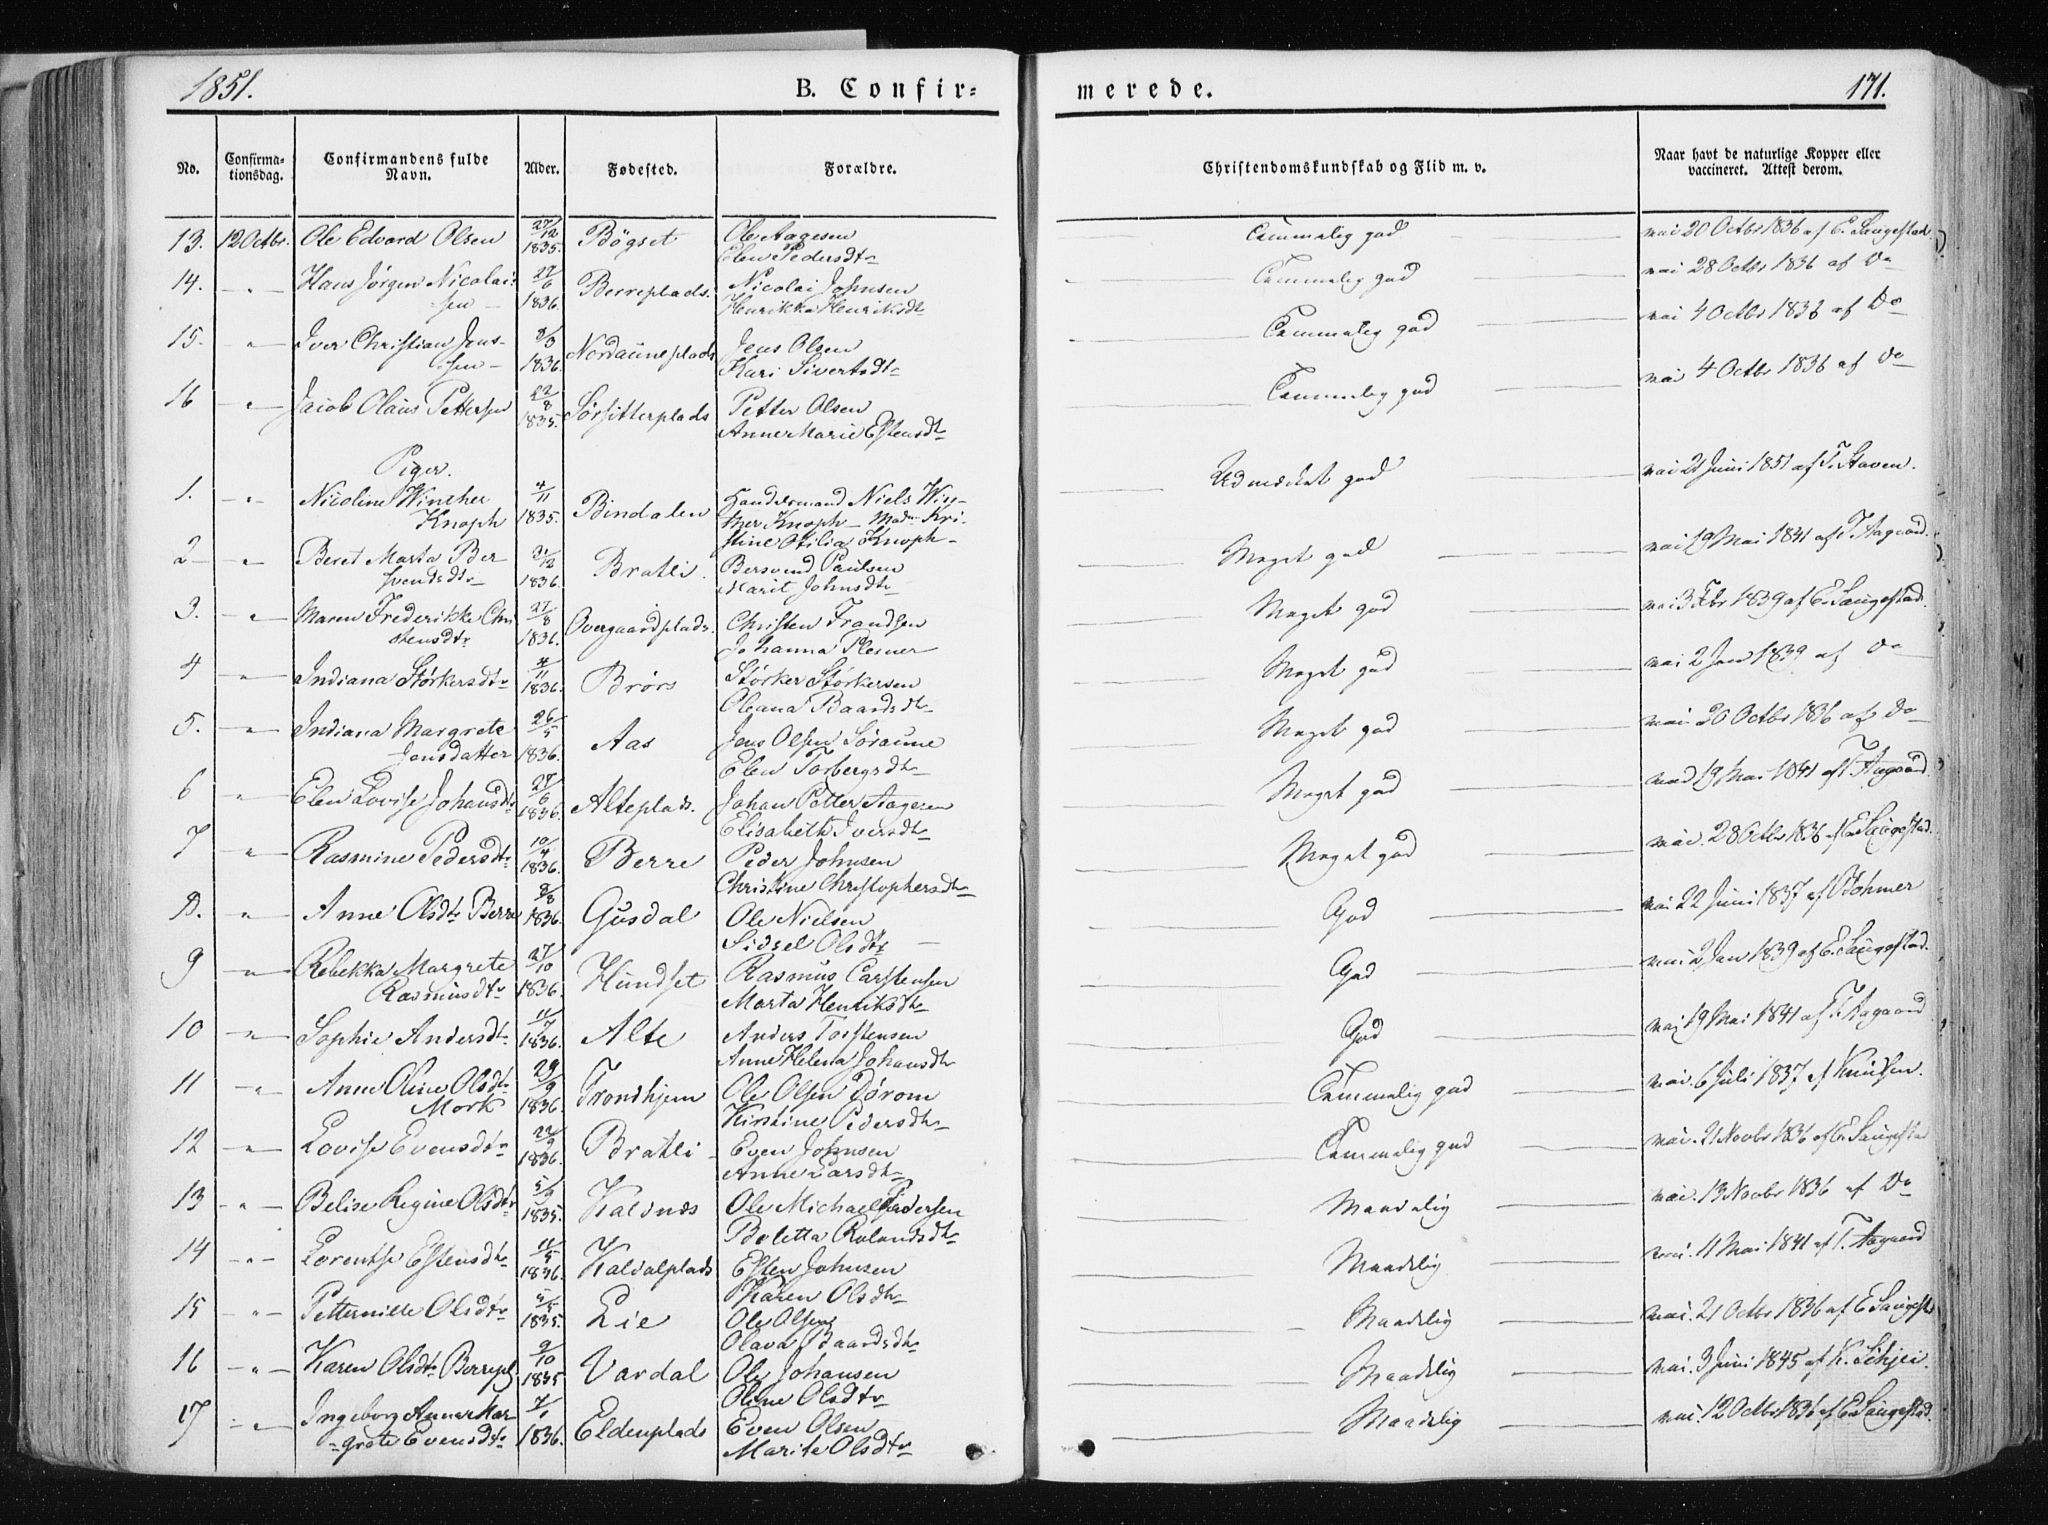 1851.
B. Confir-
merede.
171.
No.
Confirma-
tionsdag.
Confirmandens fulde
Navn.
Alder.
Fødested.
Forældre.
Christendomskundskab og Flid m. v.
Naar havt de naturlige Kopper eller
vaccineret. Attest derom.
13. 12 Octbr. Ole Edvard Olsen 27/12 1835. Bögset Ole Aagesen
Elen Pedersdtr
Temmelig god
vac 20 Octbr 1836 af E. Saugestad
14. " Hans Jörgen Nicolai-
sen 27/6 1836. Berreplads. Nicolai Johnsen
Henrikka Henriksdtr
Temmelig god
vac 28 Octbr 1836 af Do
15. " Iver Christian Jens-
sen 1836. Nordauneplads Jens Olsen
Kari Sivertsdtr
Temmelig god
vac 4 Octbr 1836 af Do
16 " Jacob Olaus Pettersen 22/8 1835. Sörsitterplads Petter Olsen
Anne Marie Estensdtr
Temmelig god
vac 4 Octbr 1836 af Do
Piger.
1. " Nicoline Wincher
Knoph 4/11 1835. Bindalen Handelsmand Niels Win-
ther Knoph - Madm Kri-
stine Otilia Knoph
Udmærket god
vac 21 Juni 1851 af T. Staven.
2 " Beret Marta Ber-
svendsdtr 1836. Bratli Bersvend Paulsen
Marit Johnsdtr
Meget god
vac 19 Mai 1841 af T. Aagaard
3. " Maren Frederikke Chri
stensdtr 27/8 1836. Overgaardplads. Christen Frandsen
Johanna Plesner
Meget god
vac 3 Fbr 1839 af E. Saugestad.
4 " Indiana Störkersdtr 4/11 1836. Brörs Störker Störkersen
Oleana Baardsdtr
Meget god
vac 2 Jan 1839 af Do
5. " Indiana Margrete
Jensdatter 26/5 1836. Aas Jens Olsen Söraune
Elen Torbergsdtr
Meget god
vac 20 Octbr 1836 af Do
6 " Elen Lovise Johansdtr 27/6 1836. Alteplads. Johan Petter Aagesen
Elisabeth Iversdtr
Meget god
vac 19 Mai 1841 af T. Aagaard
7 " Rasmine Pedersdtr 10/4 1836. Berre Peder Johnsen
Christine Christophersdtr
Meget god
vac. 28 Octbr 1836 af E. Saugestad.
8. " Anne Olsdtr Berre 8/8 1836. Gusdal Ole Nielsen
Sidsel Olsdtr
God
vac 22 Juni 1837 af Rohmer
9 " Rebekka Margrete
Rasmusdtr 27/10 1836. Hundset Rasmus Carstensen
Marta Henriksdtr
God
vac 2 Jan 1839 af E. Saugestad.
10 " Sophie Andersdtr 11/7 1836. Alte Anders Torstensen
Anne Helena Johansdtr
God
vac 19 Mai 1841 af T. Aagaard
11 " Anne Oline Olsdtr
Mork 29/9 1836. Trondhjem Ole Olsen Dörom
Kirstine Pedersdtr
Temmelig god
vac. 6 Juli 1837 af Knudsen.
12 " Lovise Evensdtr 22/9 1836. Bratli Even Johnsen
Anne Larsdtr
Temmelig god
vac. 21 Novbr 1836 af E. Saugestad
13 " Belise Regine Olsdtr 5/9 1835. Kalsnæs Ole Michael Pedersen
Boletta Rolandsdtr
Maadelig
vac. 13 Novbr 1836 af Do
14 " Lorentse Estensdtr 11/5 1836. Kaldalplads Esten Johnsen
Karen Olsdtr
Maadelig
vac. 11 Mai 1841 af T. Aagaard
15 " Petternille Olsdtr 5/5 1835. Lie Ole Olsen
Olava Baardsdtr
Maadelig
vac. 21 Octbr 1836 af E. Saugestd
16 " Karen Olsdtr Berrepl 9/10 1835 Vardal Ole Johansen
Oline Olsdtr
Maadelig
vac. 3 Juni 1845 af K. Schjei.
17 " Ingeborg Anne Mar-
grete Evensdtr 1836. Eldenplads Even Olsen
Marite Olsdtr
Maadelig
vac. 12 Octbr 1836 af E. Saugestad.